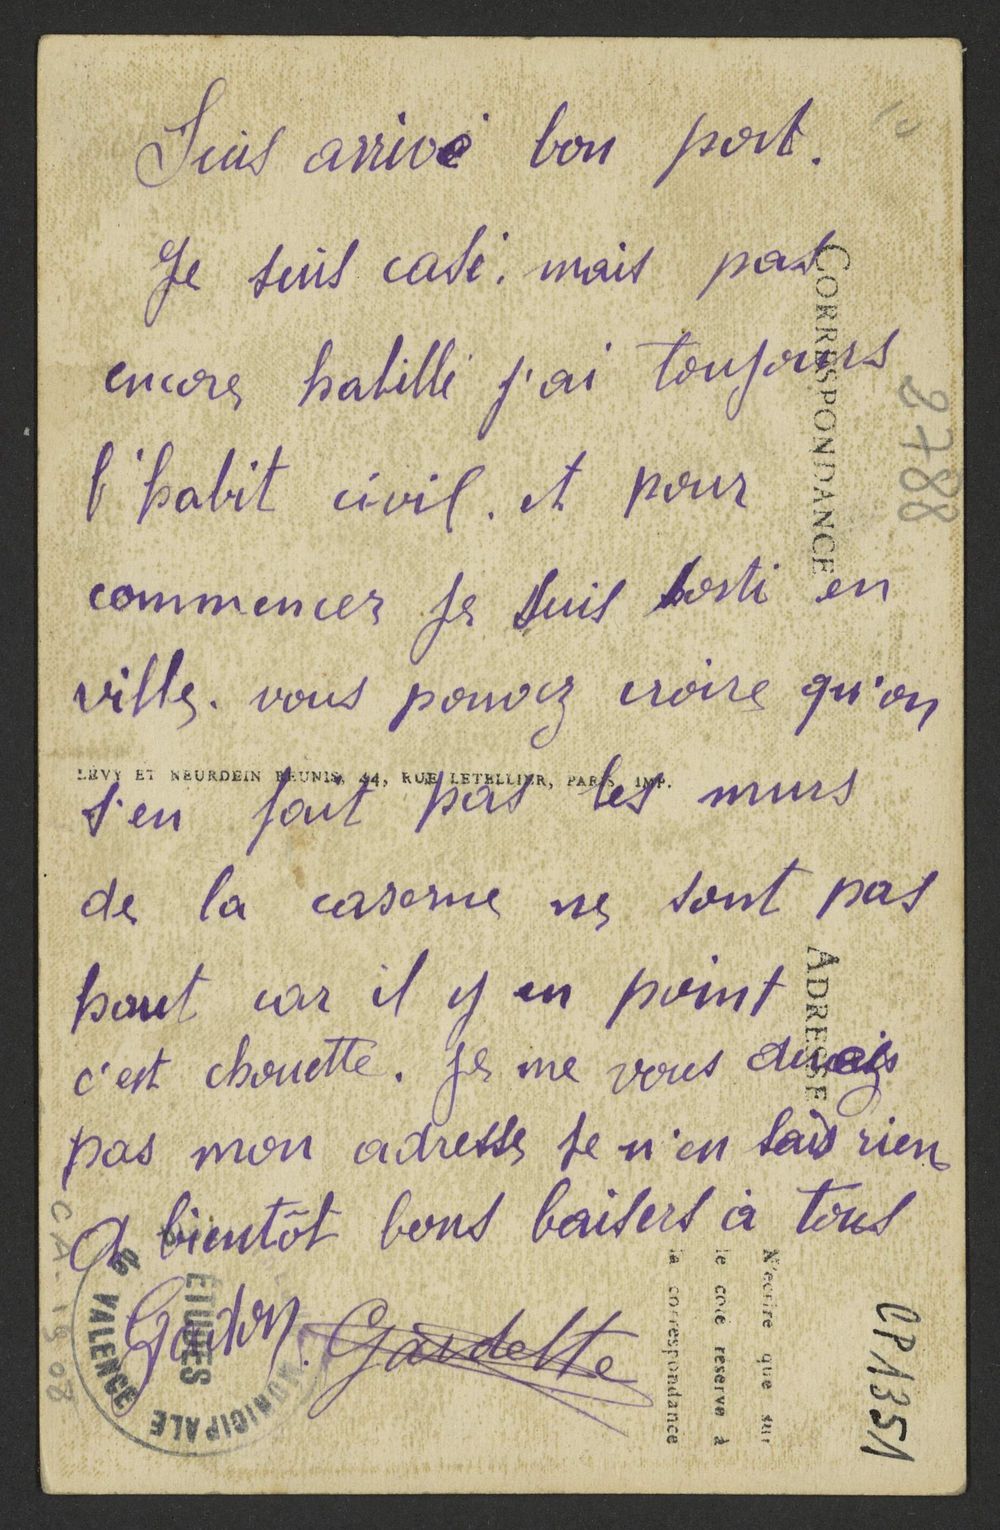 Suis arrivé bon port.
Je suis casé. mais pas
encore habillé j'ai toujours
l'habit civil. et pour
commencer je suis sorti en
ville. vous pouvez croire qu'on
s'en fait pas les murs
de la caserne ne sont pas
haut car il y en point
c'est chouette. Je me vous
pas mon adresse je n'en sais rien
A bientôt bons baisers à tous
Gardette
CORRESPONDANCE
ADRESSE
LÉVY ET NEURDEIN RÉUNIS, 44, RUE LETELLIER, PARIS, IMP.
N'écrire que sur
le côté réservé à
la correspondance
2788
CP1351
ÉTUDES
MUNICIPALE
de VALENCE